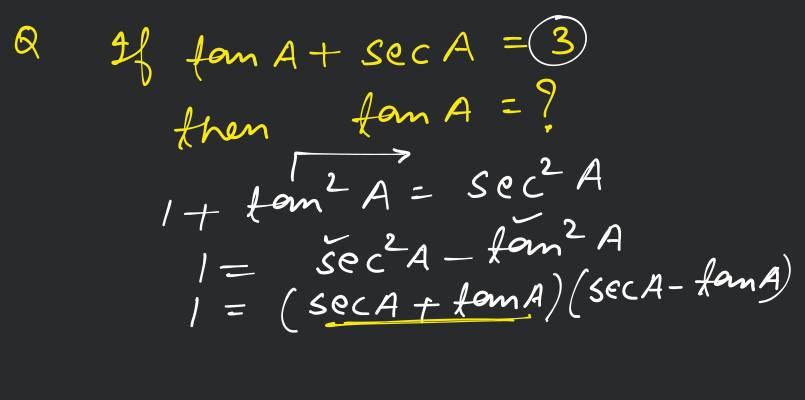 Q If tan A + sec A = 3
then tan A = ?
1 + tan² A = sec² A
1 = sec² A - tan² A
1 = (sec A + tan A)(sec A - tan A)